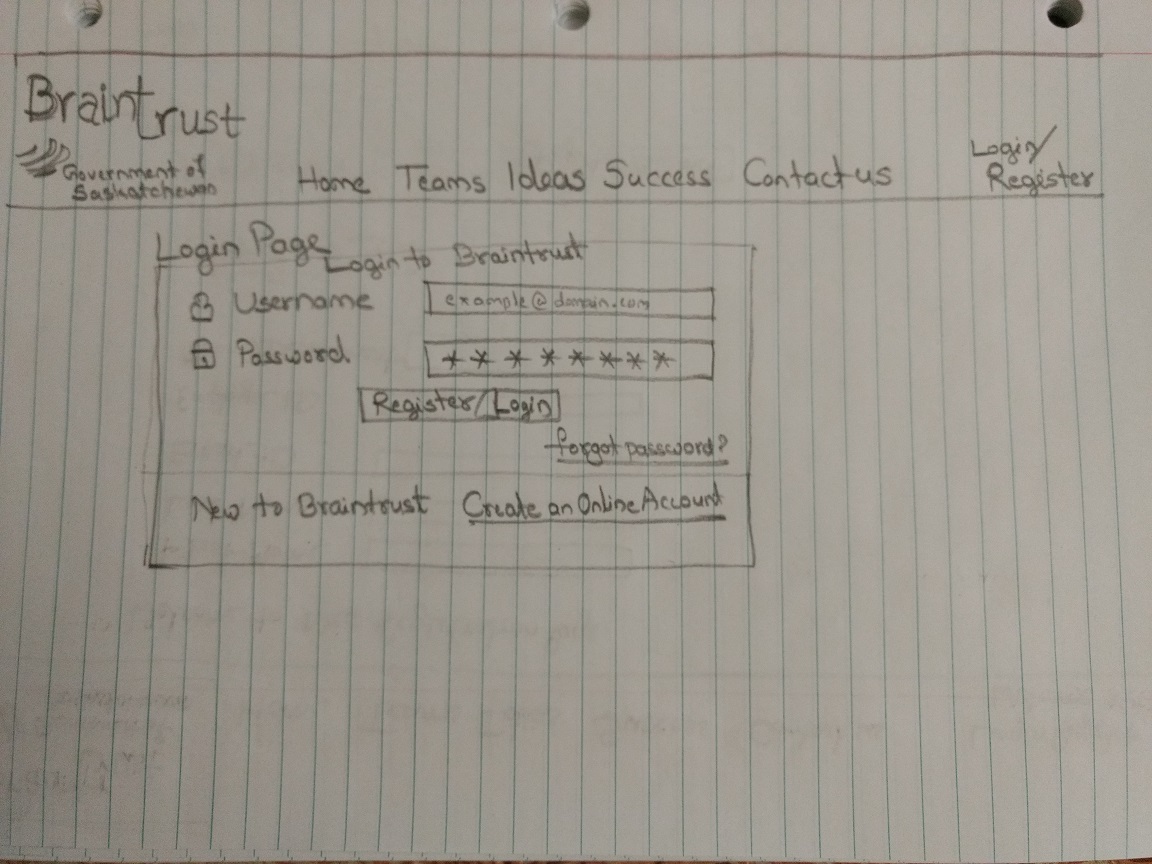 Braintrust
Government of
Saskatchewan
Home Teams Ideas Success Contact us
Login/
Register
Login Page
Login to Braintrust
Username example@domain.com
Password ********
Register/Login
forgot password?
New to Braintrust Create an Online Account